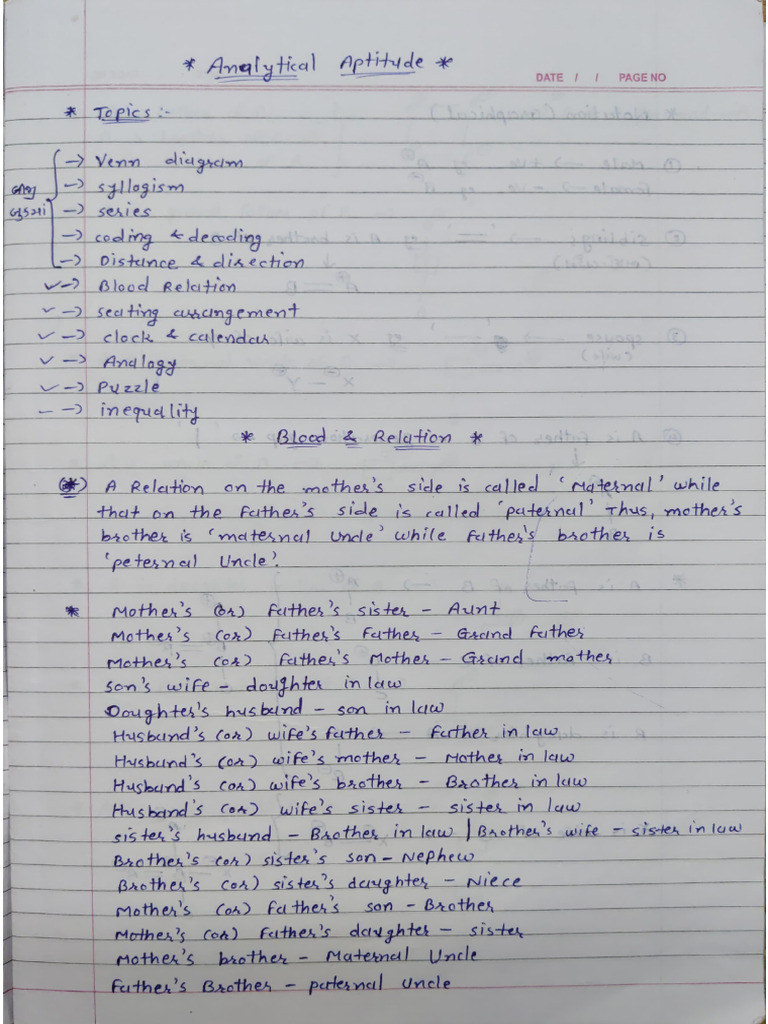 * Analytical Aptitude *
DATE / / PAGE NO
* Topics :-
→ Venn diagram
→ syllogism
→ series
→ coding & decoding
→ Distance & direction
✓→ Blood Relation
✓→ seating arrangement
✓→ clock & calendar
✓→ Analogy
✓→ Puzzle
-→ inequality
* Blood & Relation *
* A Relation on the mother's side is called 'Maternal' while
that on the Father's side is called 'paternal' Thus, mother's
brother is 'maternal uncle' while Father's brother is
'peternal Uncle'.
* Mother's (or) Father's sister - Aunt
Mother's (or) Father's Father - Grand Father
Mother's (or) Father's Mother - Grand mother
son's wife - doughter in law
Doughter's husband - son in law
Husband's (or) wife's father - Father in law
Husband's (or) wife's mother - Mother in law
Husband's (or) wife's brother - Brother in law
Husband's (or) wife's sister - sister in law
sister's husband - Brother in law | Brother's wife - sister in law
Brother's (or) sister's son - Nephew
Brother's (or) sister's daughter - Niece
Mother's (or) father's son - Brother
Mother's (or) Father's daughter - sister
Mother's brother - Maternal Uncle
Father's Brother - paternal Uncle